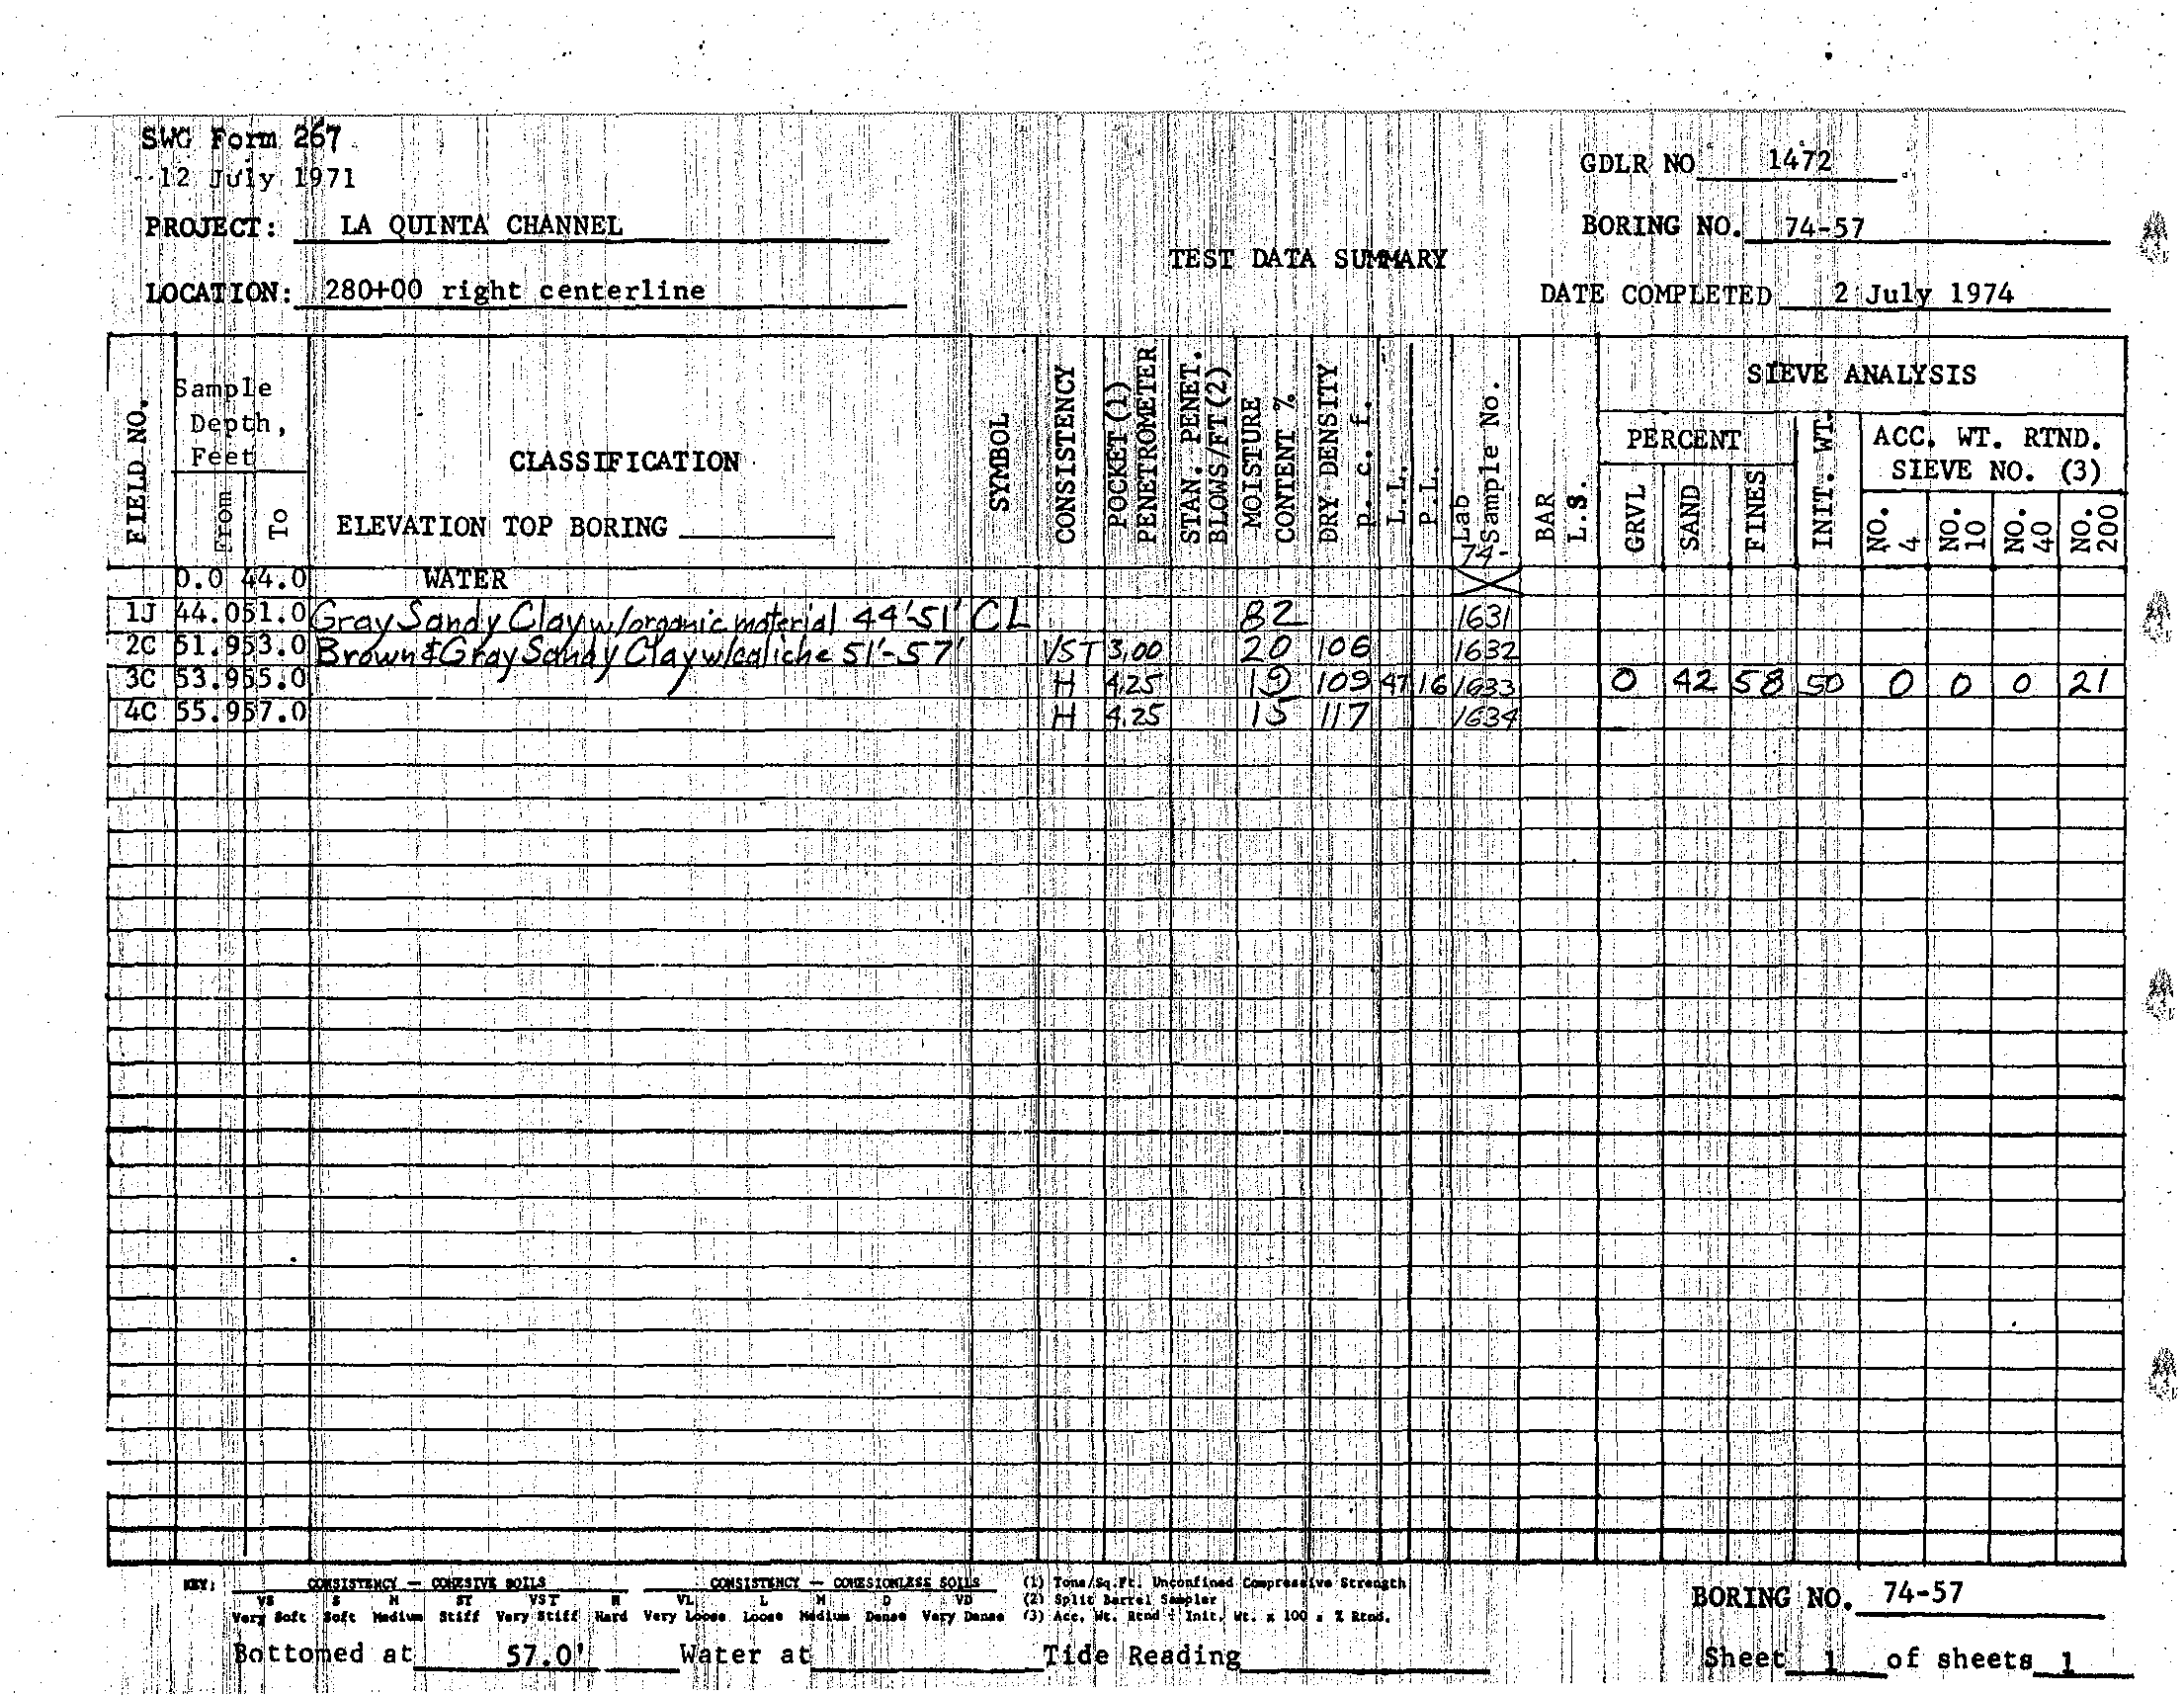 SWG Form 267
12 July 1971
GDLR NO 1472
PROJECT: LA QUINTA CHANNEL
BORING NO. 74-57
TEST DATA SUMMARY
LOCATION: 280+00 right centerline
DATE COMPLETED 2 July 1974
FIELD NO.
Sample Depth, Feet
From
To
CLASSIFICATION
ELEVATION TOP BORING
SYMBOL
CONSISTENCY
POCKET (1) PENETROMETER
STAN. PENET. BLOWS/FT (2)
MOISTURE CONTENT %
DRY DENSITY p. c. f.
L.L.
P.L.
Lab Sample No.
74-
BAR L.S.
SIEVE ANALYSIS
PERCENT
GRVL
SAND
FINES
INIT. WT.
ACC. WT. RTND.
SIEVE NO. (3)
NO. 4
NO. 10
NO. 40
NO. 200
0.0 44.0 WATER
1J 44.0 51.0 Gray Sandy Clay w/organic material 44'-51' CL 82 1631
2C 51.9 53.0 Brown & Gray Sandy Clay w/caliche 51'-57' VST 3.00 20 106 1632
3C 53.9 55.0 H 4.25 19 109 47 16 1633 0 42 58 50 0 0 0 21
4C 55.9 57.0 H 4.25 15 117 1634
KEY: CONSISTENCY — COHESIVE SOILS CONSISTENCY — COHESIONLESS SOILS (1) Tons/Sq.Ft. Unconfined Compressive Strength
VS S M ST VST H VL L M D VD (2) Split Barrel Sampler
Very Soft Soft Medium Stiff Very Stiff Hard Very Loose Loose Medium Dense Very Dense (3) Acc. Wt. Rtnd ÷ Init. Wt. x 100 = % Rtnd.
BORING NO. 74-57
Bottomed at 57.0' Water at Tide Reading
Sheet 1 of sheets 1